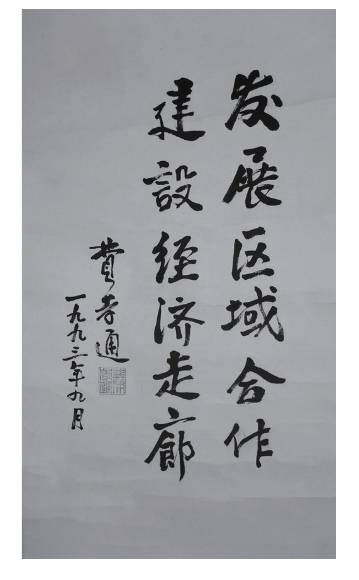 发展区域合作
建設经济走廊
費孝通
一九九三年九月